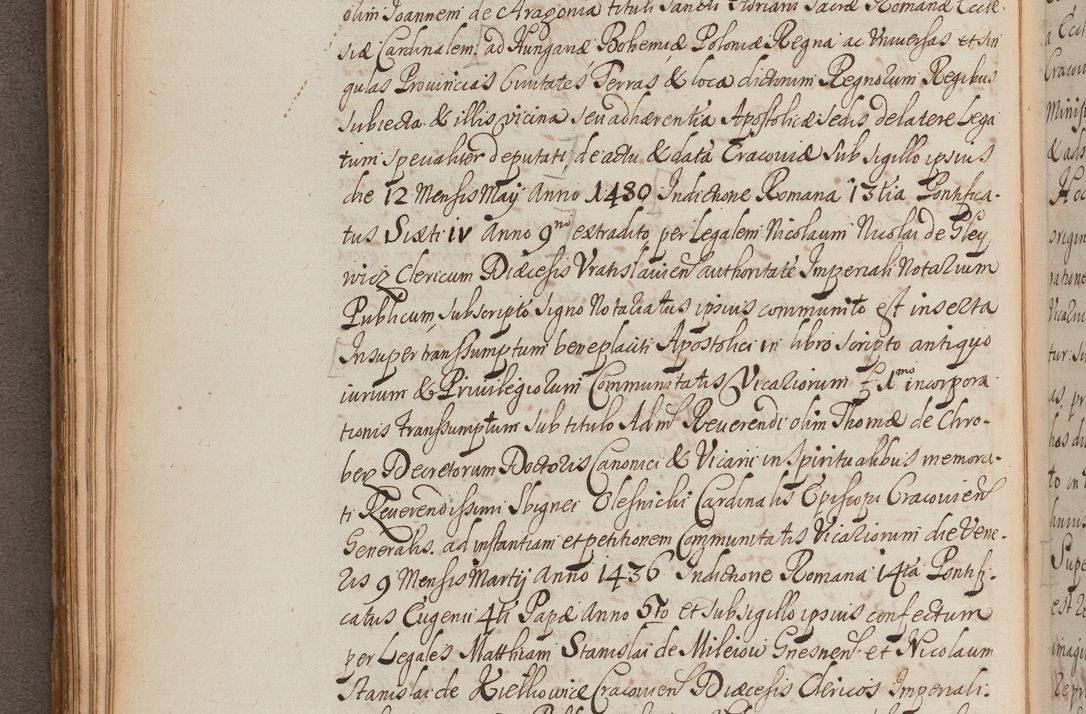 olim Joannem de Aragonia tituli Sancti Floriani Sacræ Romanæ Eccle
siæ Cardinalem, ad Hungariæ Bohemiæ Poloniæ Regna ac Vniversas et sin
gulas Provincias Civitates Terras, & loca dictorum Regnorum Regibus
subiecta & illis vicina, seu adhærentia Apostolicæ sedis de latere Lega
tum specialiter deputati, de actu & data Cracoviæ sub sigillo ipsius
die 12 Mensis Maij Anno 1480 Indictione Romana 13tia Pontifica-
tus Sixti IV Anno 9no extradito, per Legalem Nicolaum Nicolai de Gley
wicz Clericum Diæcesis Vratislavien authoritate Imperiali Notarium
Publicum, subscripto signo Notariatus ipsius communito est inserta
Insuper transsumptum beneplaciti Apostolici in libro scripto antiquo
iurium & Privilegiorum Communitatis Vicariorum f 1mo incorpora
tionis transsumptum sub titulo Adm Reverendi olim Thomæ de Chro-
berz Decretorum Doctoris Canonici & Vicarii in Spiritualibus memora-
ti Reverendissimi Sbignei Olesnichi Cardinalis Episcopi Cracovien
Generalis. ad instantiam et petitionem Communitatis Vicariorum die Vene-
ris 9 Mensis Martij Anno 1436 Indictione Romana 14ta Pontifi-
catus Eugenii 4ti Papæ Anno 6to et sub sigillo ipsius confectum
per Legales Matthiam Stanislai de Mileiow Gnesnen et Nicolaum
Stanislai de Kielkowice Cracovien Diæcesis Clericos Imperiali-